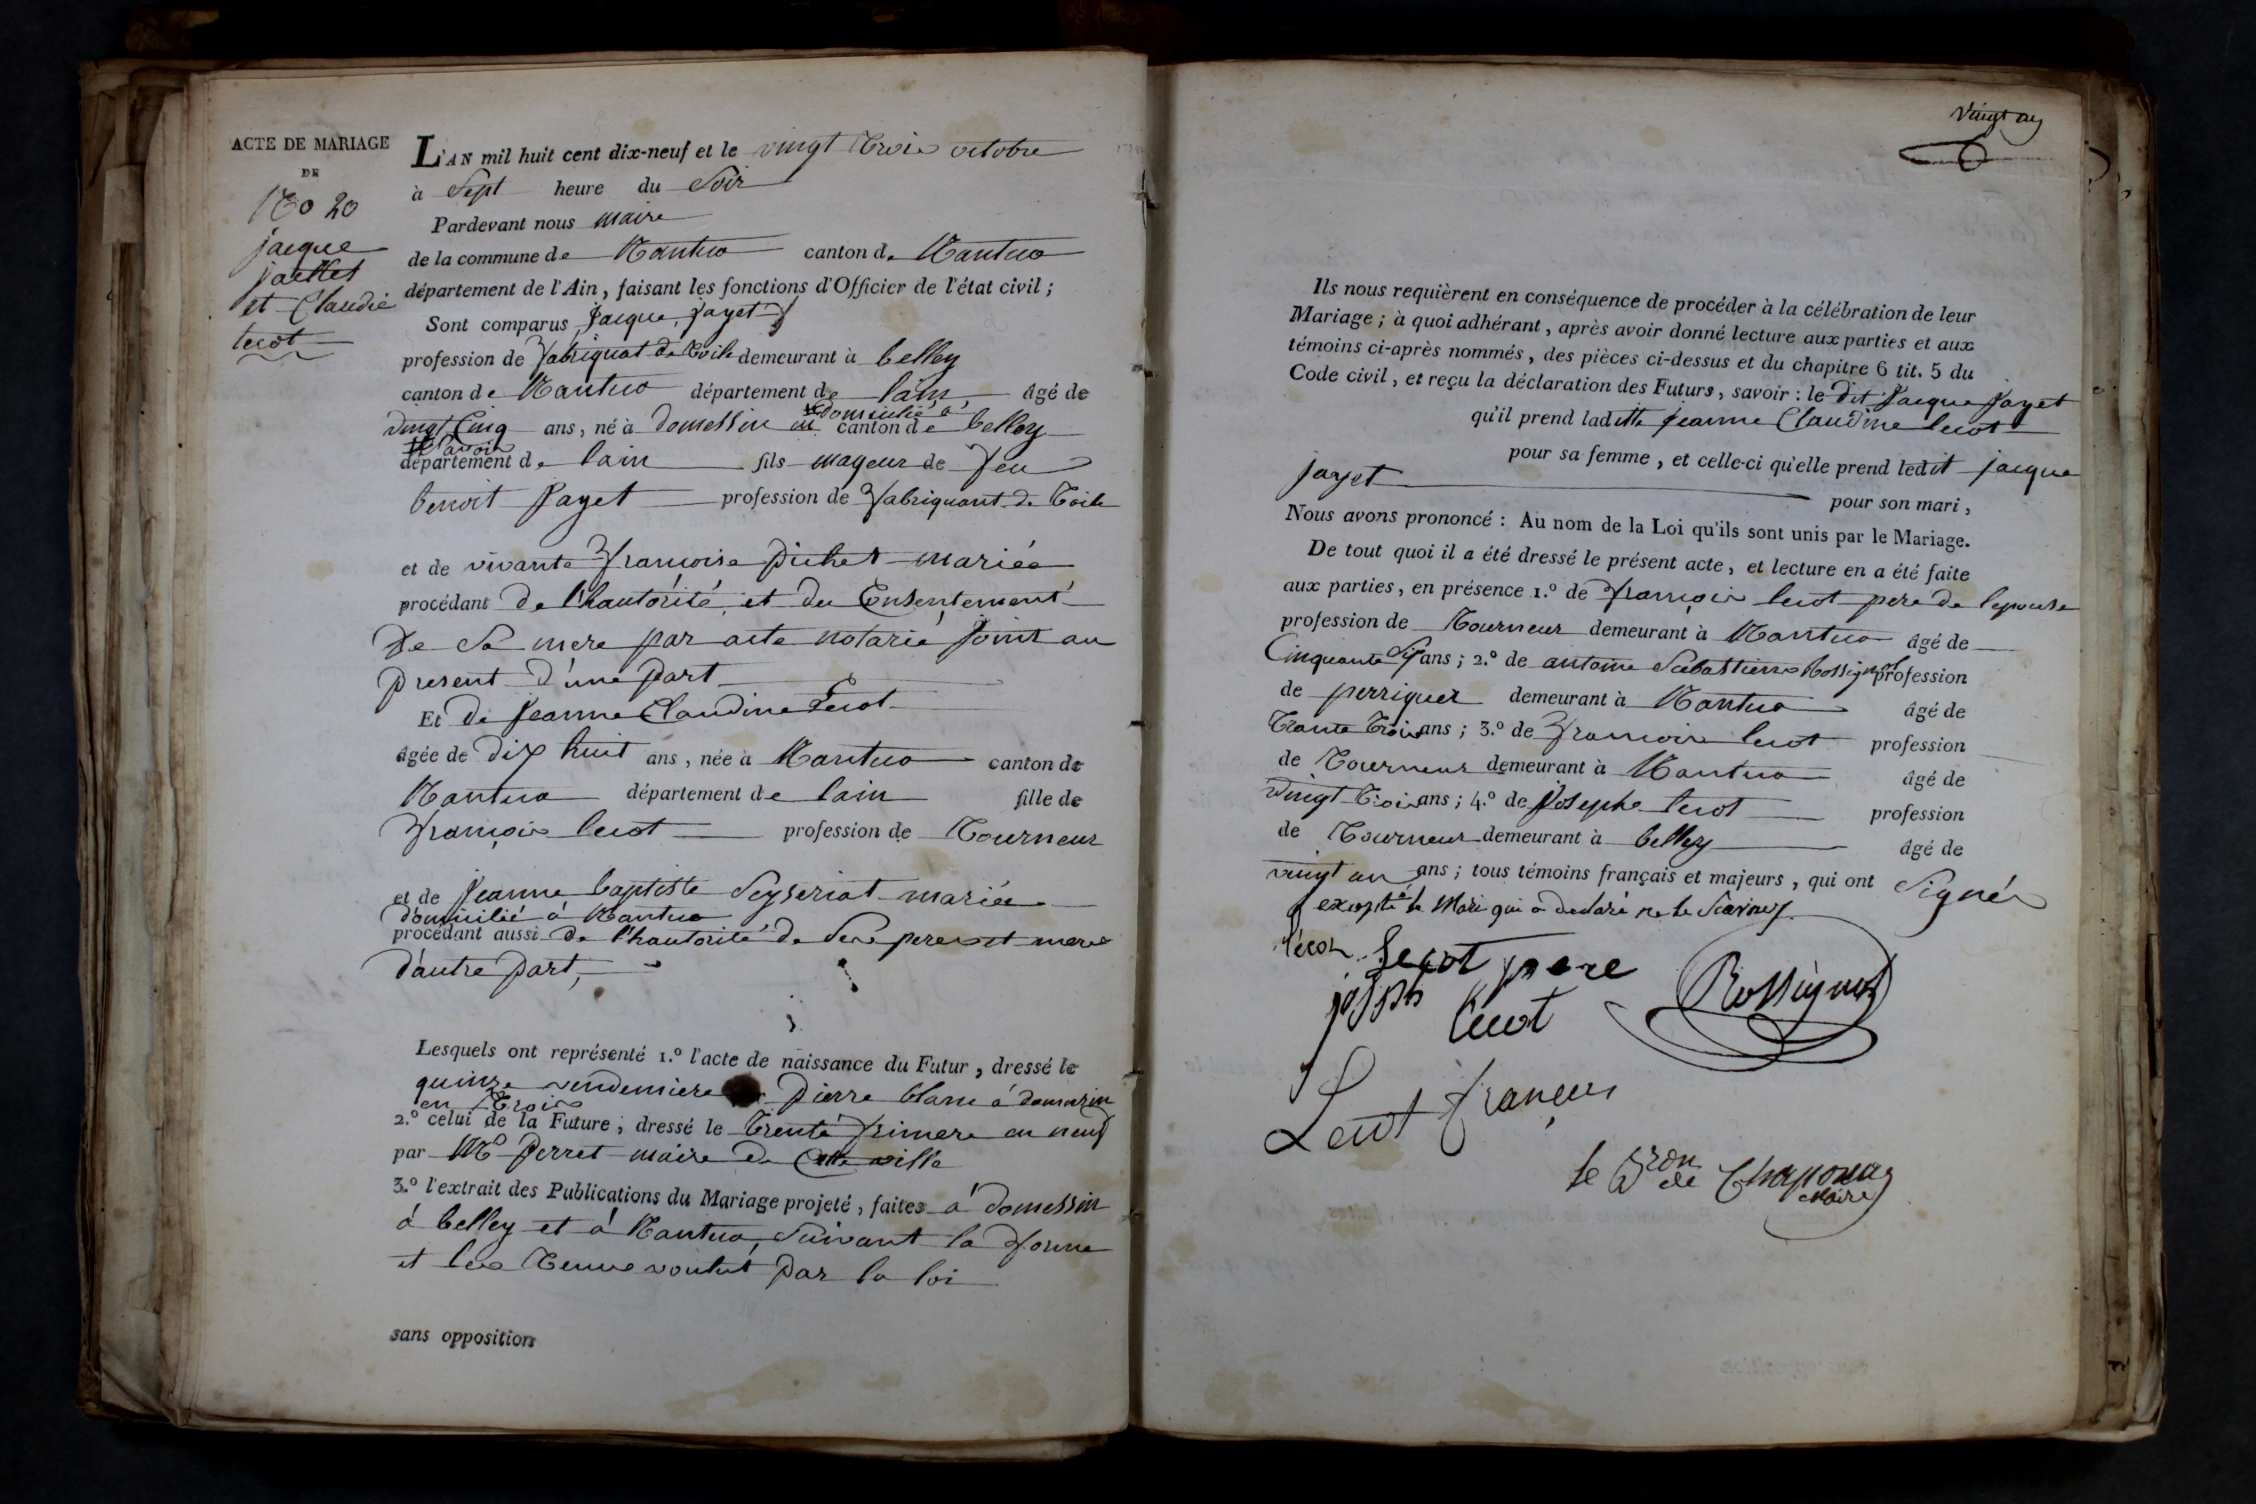 ACTE DE MARIAGE
DE
No 20
jacque
jaillet
et Claudie
lecot
L'AN mil huit cent dix-neuf et le vingt trois octobre
à Sept heure du Soir
Pardevant nous maire
de la commune de Nantua canton de Nantua
département de l'Ain, faisant les fonctions d'Officier de l'état civil ;
Sont comparus jacque jayet
profession de fabriquat de toile demeurant à belley
canton de Nantua département de lain, âgé de
domicilié à
vingt Cinq ans, né à domessin canton de belley
département de lain fils mageur de feu
benoit jayet profession de fabriquant de toile
et de vivante francoise pichet mariée
procédant de l'hautorité et du Consentement
de Sa mere par acte notarié joint au
present d'une part
Et de jeanne Claudine Lecot
âgée de dix huit ans, née à Nantua canton de
Nantua département de lain fille de
françois lecot profession de tourneur
et de jeanne baptiste Seyseriat mariée
domicilié à Nantua
procédant aussi de l'hautorité de Ses peres et meres
d'autre part,
Lesquels ont représenté 1.º l'acte de naissance du Futur, dressé le
quinze vendemiere pierre blanc à domessin
en trois
2.º celui de la Future ; dressé le trente frimere an neuf
par Mº perret maire de Cette ville
3.º l'extrait des Publications du Mariage projeté, faites à domessin
à belley et à Nantua, Suivant la forme
et les termes voulut par la loi
sans opposition
vingt un
Ils nous requièrent en conséquence de procéder à la célébration de leur
Mariage ; à quoi adhérant, après avoir donné lecture aux parties et aux
témoins ci-après nommés, des pièces ci-dessus et du chapitre 6 tit. 5 du
Code civil, et reçu la déclaration des Futurs, savoir : le dit jacque jayet
qu'il prend laditte jeanne Claudine lecot
pour sa femme, et celle-ci qu'elle prend ledit jacque
jayet pour son mari,
Nous avons prononcé : Au nom de la Loi qu'ils sont unis par le Mariage.
De tout quoi il a été dressé le présent acte, et lecture en a été faite
aux parties, en présence 1.º de françois lecot pere de lepouse
profession de tourneur demeurant à Nantua âgé de
Cinquante Six ans ; 2.º de antoine Sebastien Rossignol profession
de perriquer demeurant à Nantua âgé de
trante trois ans ; 3.º de francois lecot profession
de tourneur demeurant à Nantua âgé de
vingt trois ans ; 4.º de josephe lecot profession
de tourneur demeurant à belley âgé de
vingt un ans ; tous témoins français et majeurs, qui ont Signés
excepté le Mari qui a declaré ne le Scavoir
lecot lecot pere
joseph lecot Rossignol
Lecot françois
le Bron de Chaponay
Maire